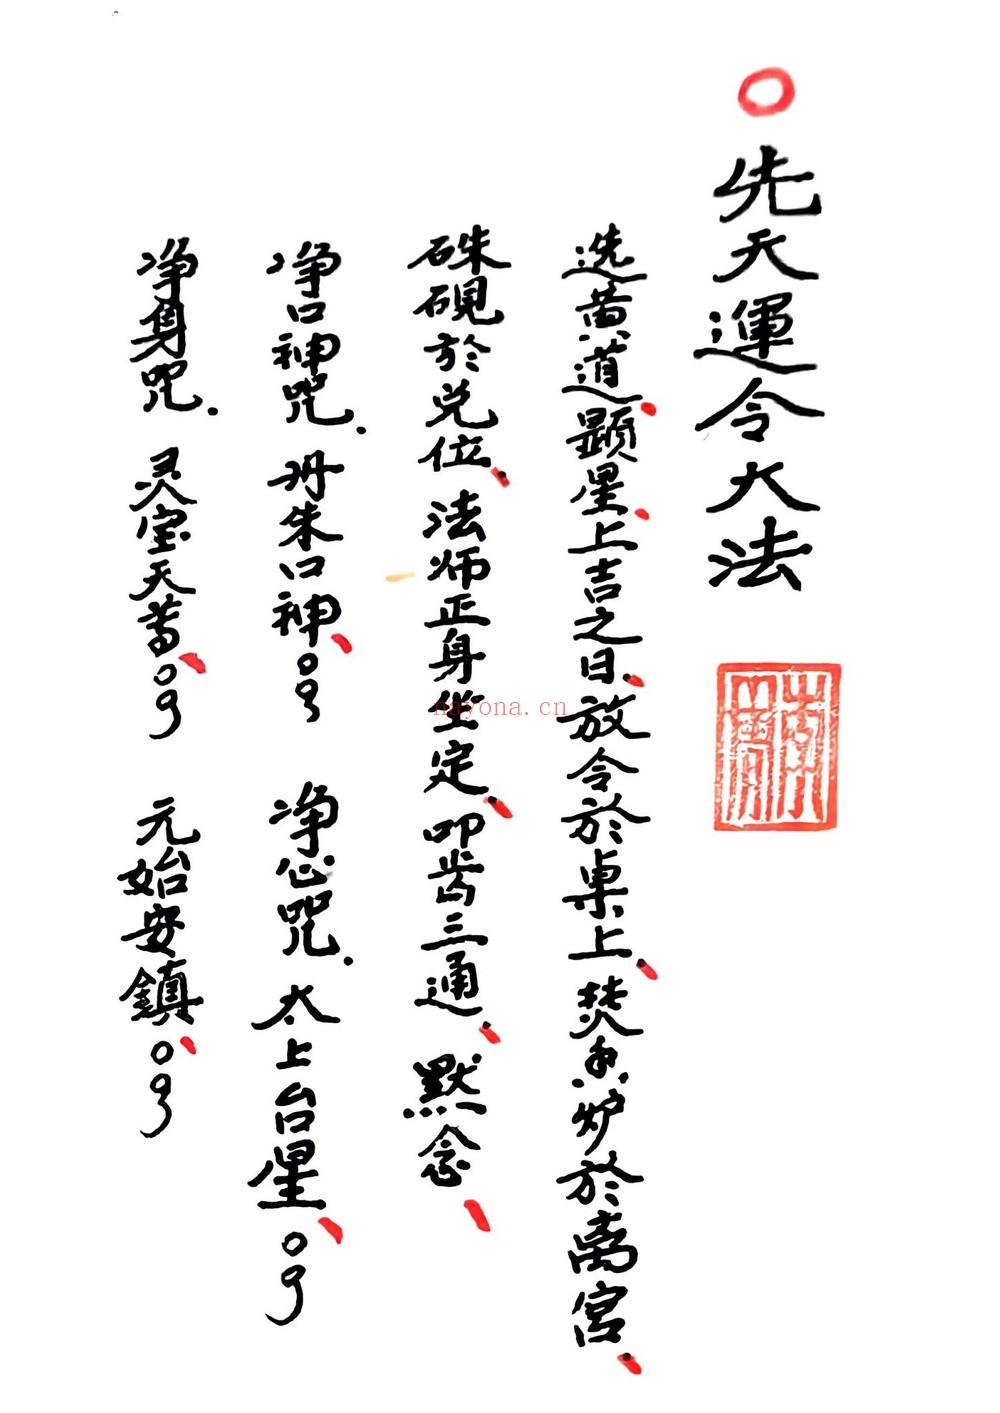 先天運令大法
选黄道顕星上吉之日放令於桌上焚香炉於离宮
硃硯於兑位法师正身坐定叩齿三通默念
净口神咒.丹朱口神 净心咒.太上台星
净身咒.灵宝天尊 元始安鎮
nayona.cn